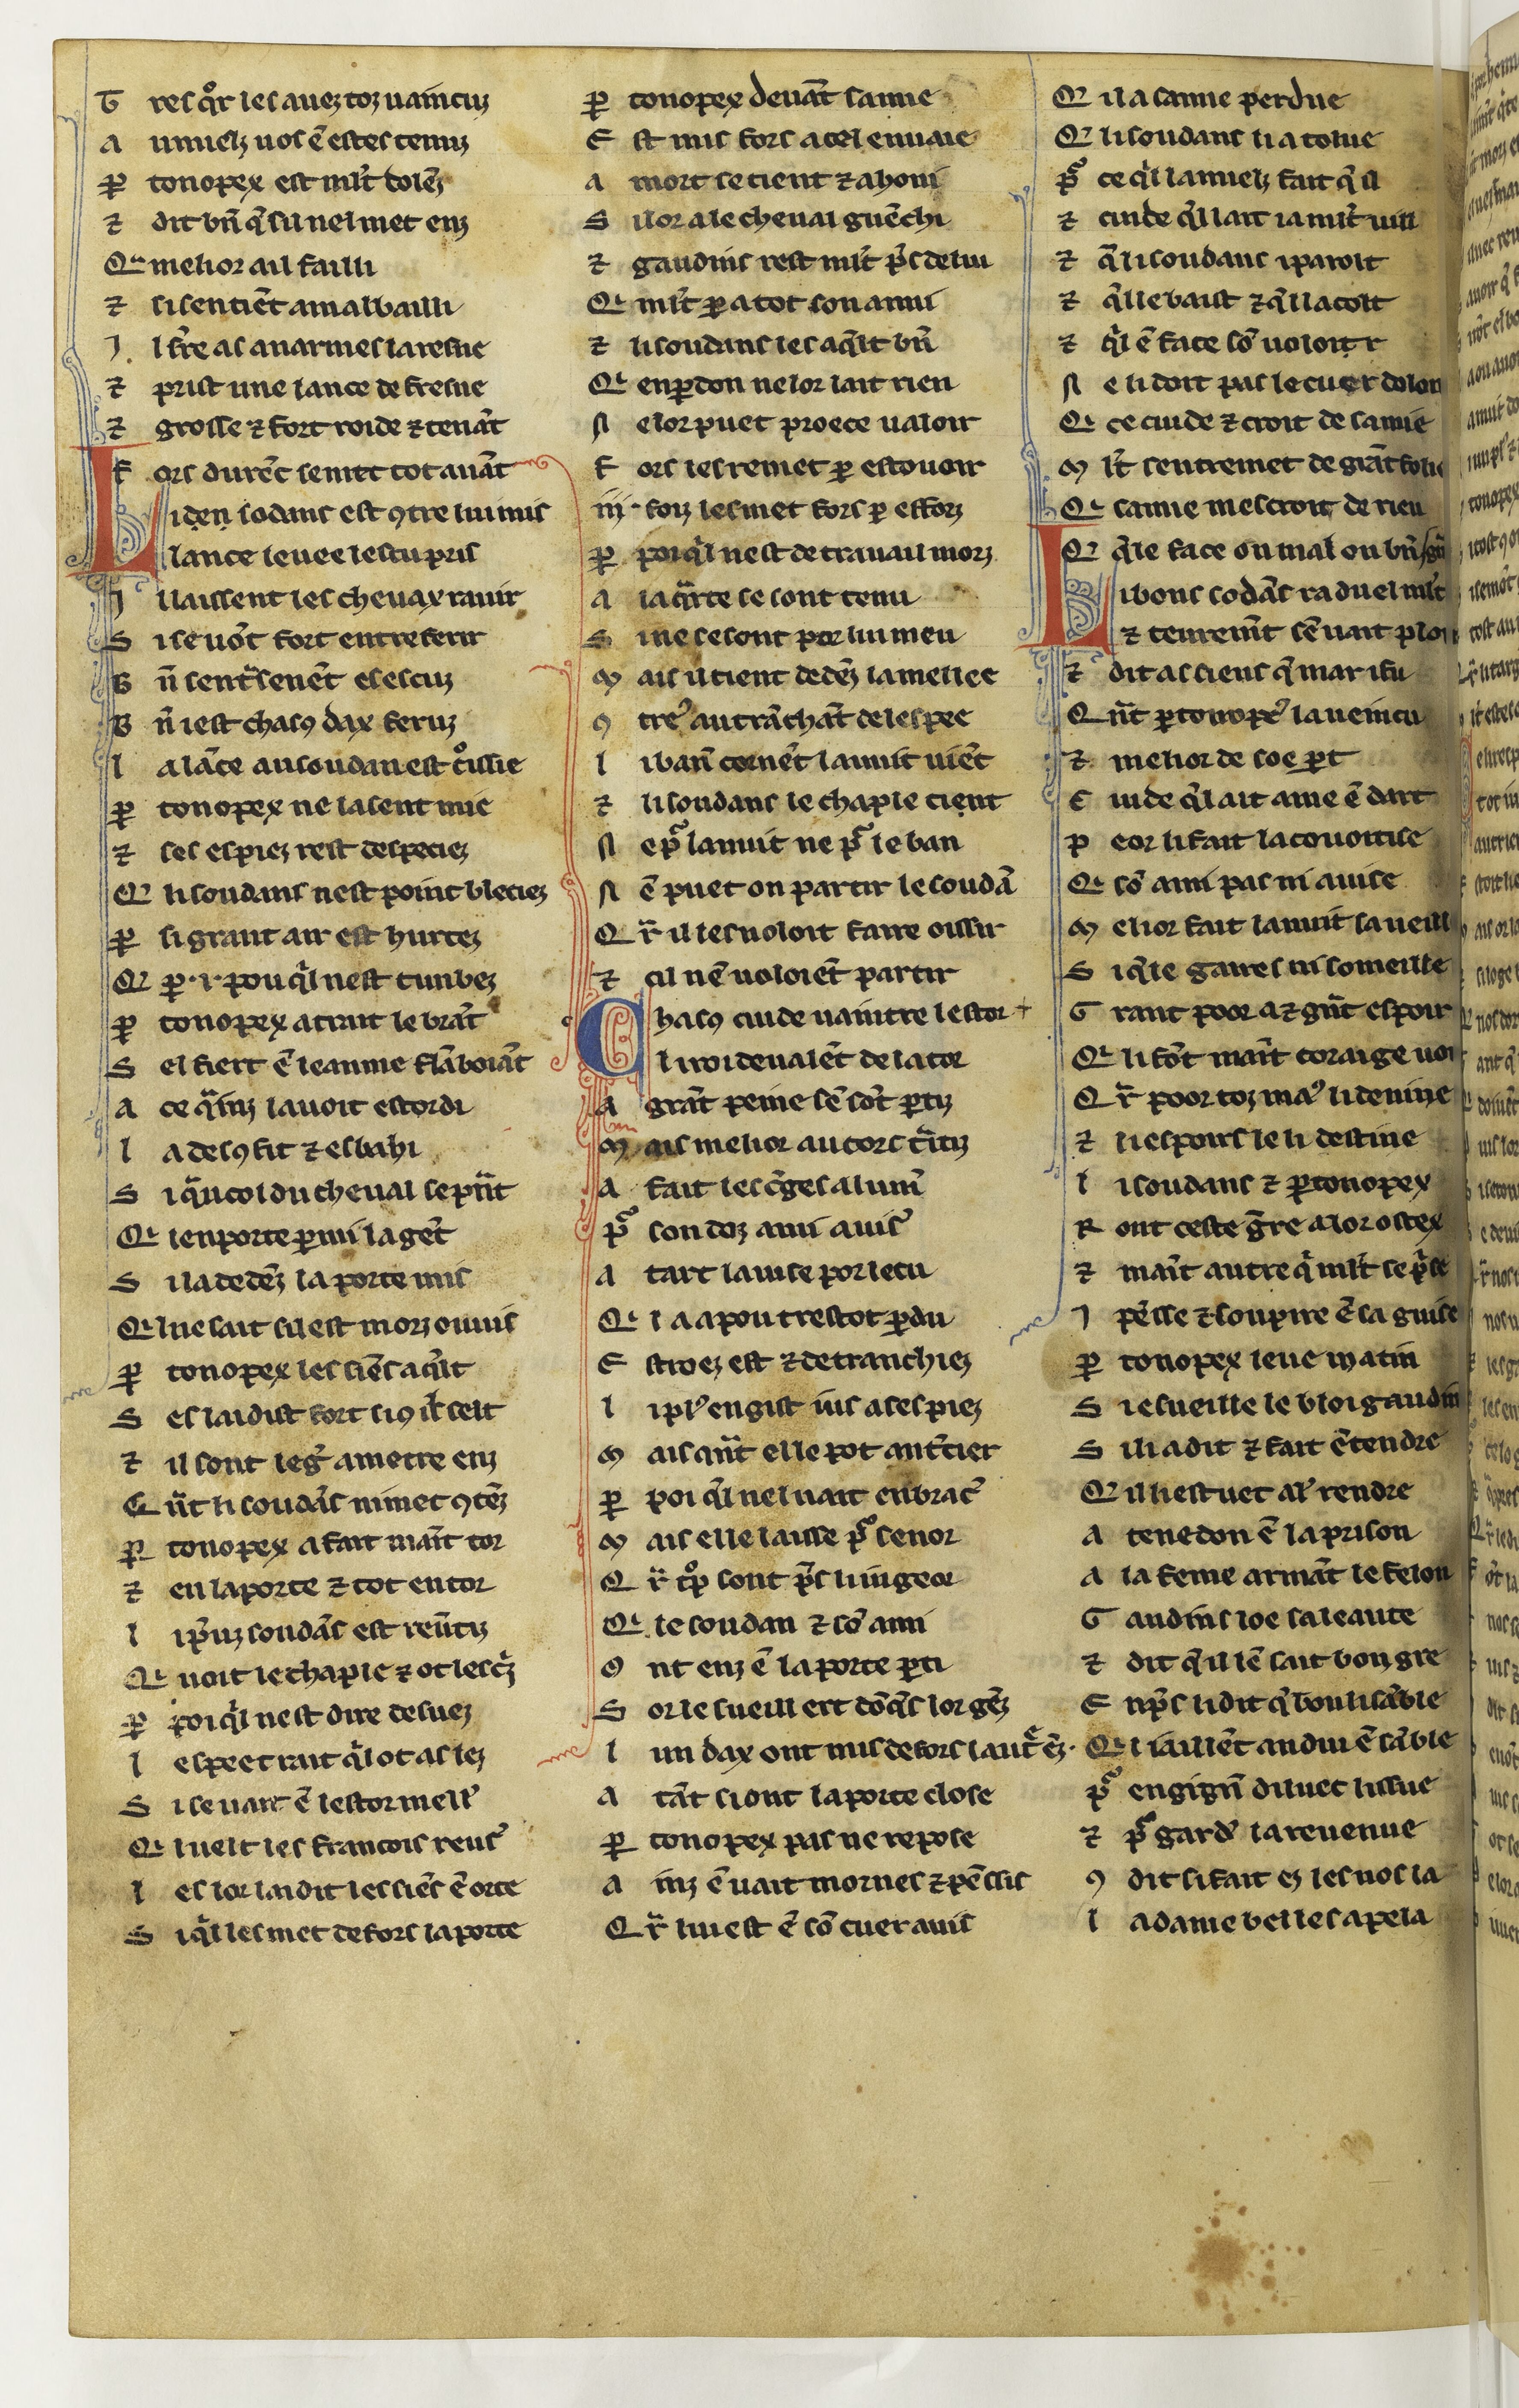 T res q̊r les auez toz uaincuz
A uuiels uos ē estes tenuz
P̱ tonopex est ml̄t dolēz
⁊ dit bn̄ q̄ sil nel met enz
Qͥ melior a il failli
⁊ si sen tiēt a malbailli
I l sr̄e as anarmes la resne
⁊ prist une lance de fresne
⁊ grosse ⁊ fort roide ⁊ tenāt
F ors durēt se met tot auāt
L iden sodans est ꝯtre lui mis
lance leuee lescu pris
I l laissent les cheuax rauir
S i se uōt fort entreferir
B n̄ sentͥ seuēt es escuz
B n̄ i est chasꝯ dax feruz
L a lāce au soudan est c̊issie
P̱ tonopex ne la sent mie
⁊ ses espiez rest despeciez
Q li soudans nest point bleciez
P̱ si grant air est hurtez
Q p̱ .i. pou qͥl nest tunbez
P̱ tonopex atrait le brāt
S el fiert ē leaume flāboiāt
A ce qͣinz lauoit estordi
L a desꝯ fit ⁊ esbahi
S i qͣu col du cheual se pͣnt
Qͥ lenporte p̱mi la gēt
S i la dedēz la porte mis
Qͥ l ne sait sil est morz ou uis
P̱ tonopex les siēs aq̄lt
S es laidist fort si ꝯ il seit
⁊ il sont leg̉ a metre enz
Qͣ nt li soudās ni met ꝯtēz
P̱ tonopex a fait māit tor
⁊ en la porte ⁊ tot entor
L i pͥuz soudās est reūtuz
Qͥ uoit le chaple ⁊ ot les cͥz
P̱ poi qͥl nest dire desuez
L espee trait qͥl ot as lez
S i se uait ē lestor mell̉
Qͥ l uelt les francois reus̉
L es lor laidit les siēs ē orte
S i qͥl les met defors la porte
P̱ tonopex deuāt samie
E st mis fors a cel enuaie
A mort se tient ⁊ a honi
S i lor a le cheual guēchi
⁊ gaudins rest ml̄t pͥs de lui
Qͥ ml̄t p̱ a tot son anui
⁊ li soudans les aq̄lt bn̄
Qͥ enp̱don ne lor lait rien
N e lor puet proece ualoir
F ors les remet p̱ estouoir
iij. foiz les met fors p̱ esforz
P̱ poi qͥl nest de trauail morz
A la qͣrte se sont tenu
S i ne se sont por lui meu
M ais il tient dedēz la mellee
ꝯ tre̾ au trāchāt de lespee
L i ban̄ cornēt la nuit uiēt
⁊ li soudans le chaple tient
N e pͦ la nuit ne pͦ le ban
N ē puet on partir le soudā
Q̄ r il les uoloit faire oissir
⁊ cil nē uoloiēt partir
C hasꝯ cuide uaintre lestor
li roi deualēt de la tor
A grāt peine sē sōt p̱tiz
M ais melior au cors tͣitiz
A fait les cͥges alum̄
pͦ son doz ami auis̉
A tart lauise por lecu
Qͥ l a a pou trestot p̱du
E stroez est ⁊ detranchiez
L i pl̉ en gist ius a ses piez
M ais aͣnt elle pot ant̄cier
P̱ poi qͥl nel uait enbrac̉
M ais elle laisse pͦ senor
Q̄ r tͦp sont pͥs li iugeor
Qͥ le soudan ⁊ sō ami
O nt enz ē la porte p̱ti
S or le sueill ert dōqͣs lor gēz
L un dax ont mis defors lautͤ ēz.
A tāt si ont la porte close
P̱ tonopex pas ne repose
A inz ē uait mornes ⁊ pēssis
Q̄ r lui est ē sō cuer auis
Q il a samie perdue
Q li soudans li a tolue
pͦ ce qͥl lanuels fait q̄ il
⁊ cuide qͥl lait ia ml̄t uill
⁊ q̄ li soudans i paroit
⁊ qͥl le baist ⁊ qͥl lacolt
⁊ qͥl ē face sō uoloir
N e li doit pas le cuer doloir
Qͥ ce cuide ⁊ croit de samie
M l̄t sentremet de grāt folie
Qͥ samie mescroit de rien
Q q̄le face ou mal ou bn̄
L i bons sodās ra duel ml̄t
⁊ tenremt̄ sē uait plo
⁊ dit as siens q̄ mar i fu
Qͣ nt p̱tonope̾ la ueincu
⁊ melior de soe p̱t
C uide qͥl ait ame ē dart
P eor li fait la couoitise
Qͥ sō ami pas ni auise
M elior fait la nuit sa ueill
S i q̄le gaires ni someille
G rant poor a ⁊ gͣnt espoir
Qͥ li fōt māit coraige
Q̄ r poor toz ma̾ li deuine
⁊ li espoirs le li destine
L i soudans ⁊ p̱tonopex
R ont ceste gͤre a lor ostex
⁊ māit autre qͥ ml̄t se pͥse
I pēsse ⁊ soupire ē sa guise
P̱ tonopex leue matin
S i esueille le bloi gaudin
S i li a dit ⁊ fait ētendre
Q il li estuet al̉ rendre
A tenedon ē la prison
A la feme armāt le felon
G audins loe sa leaute
⁊ dit q̄ il lē sait bon gre
E npͥs li dit q̄ bon li sāble
Qͥ l i aillēt andui ē sāble
pͦ engign̄ diluec lissue
⁊ pͦ gard̉ la reuenue
ꝯ dit si fait ez les uos la
L a dame belle sapela